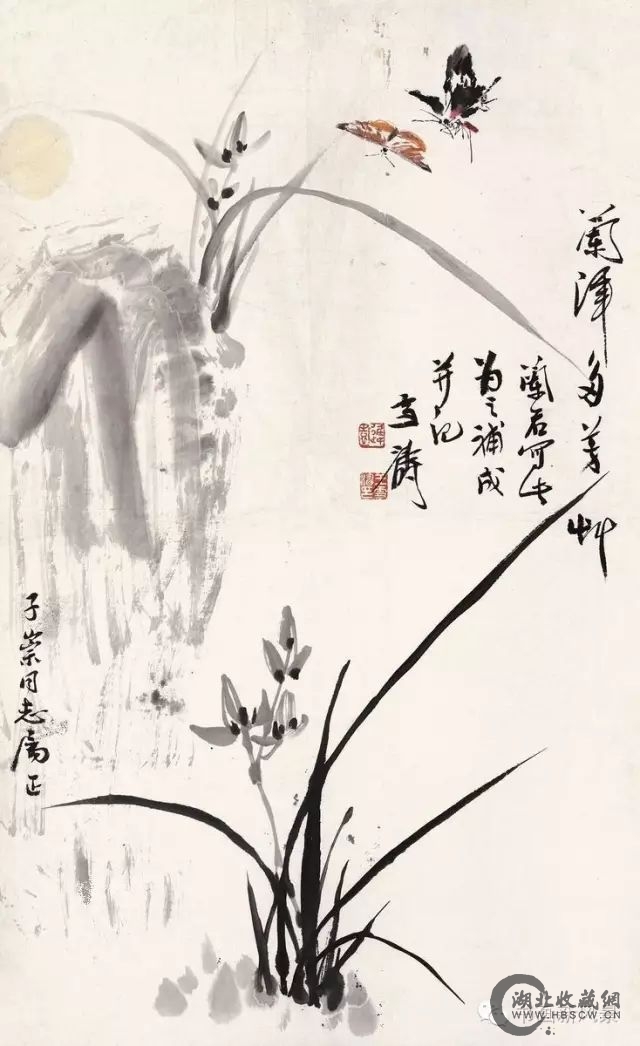 蘭澤多芳草
蘭写此
为之補成
并记
雪濤
子崇同志属正
湖北收藏網
WWW.HBSCW.CN